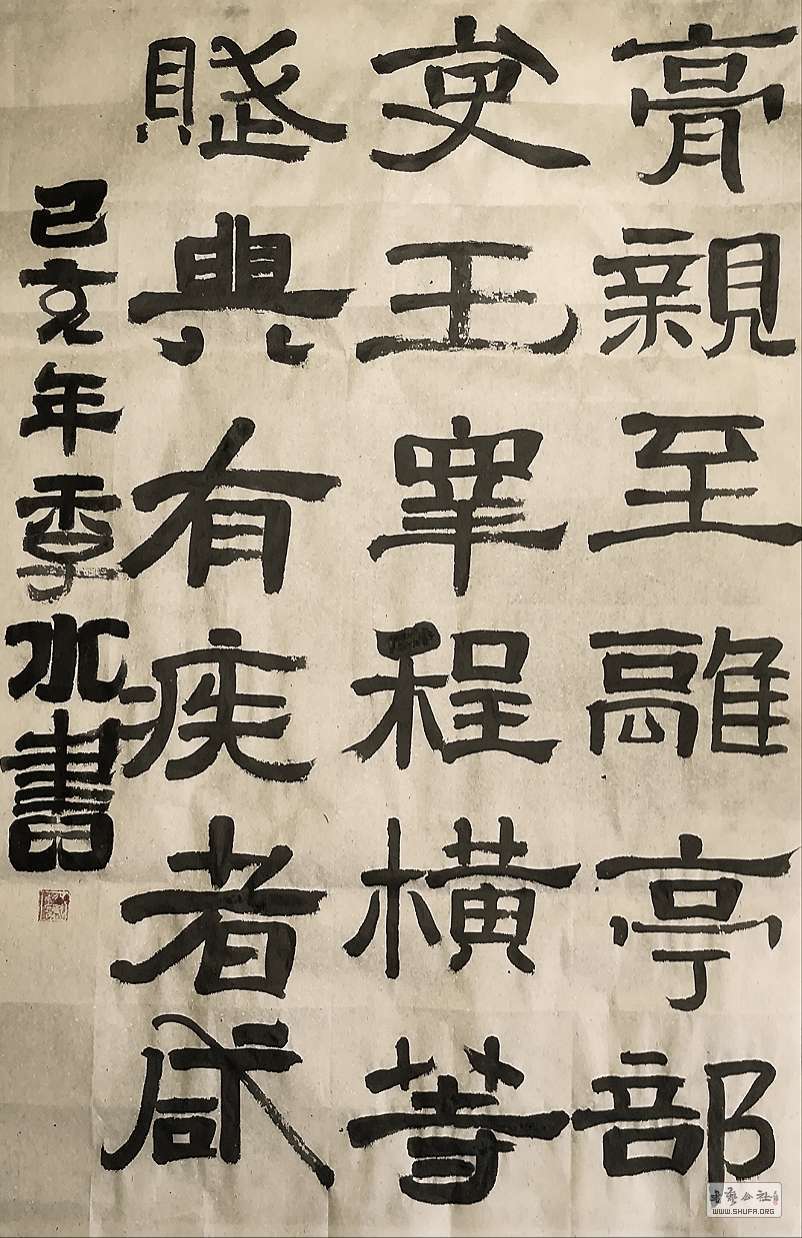 膏親至離亭部
吏王宰程橫等
賦與有疾者咸
己亥年季水書
书艺公社
WWW.SHUFA.ORG